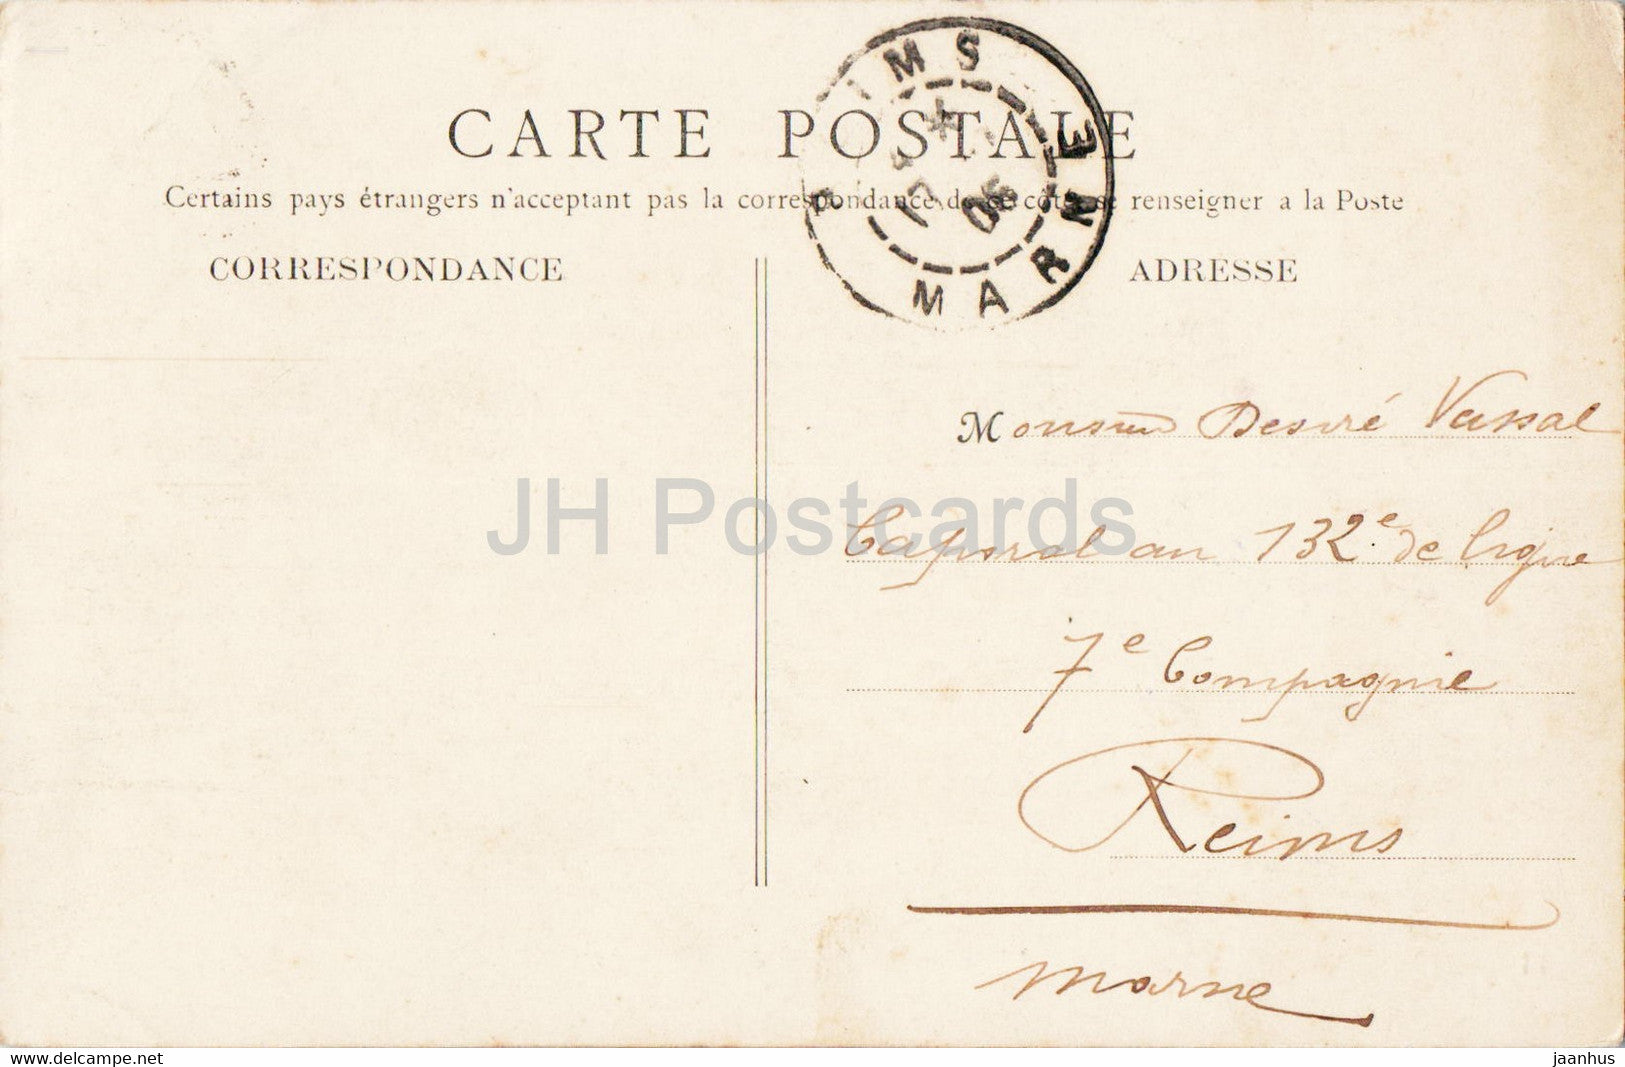 CARTE POSTALE
Certains pays étrangers n'acceptant pas la correspondance de ce côté se renseigner a la Poste
CORRESPONDANCE
ADRESSE
IMS
MARNE
06
Monsieur Desiré Vassal
Caporal au 132e de ligne
7e Compagnie
Reims
Marne
JH Postcards
www.delcampe.net
jaanhus